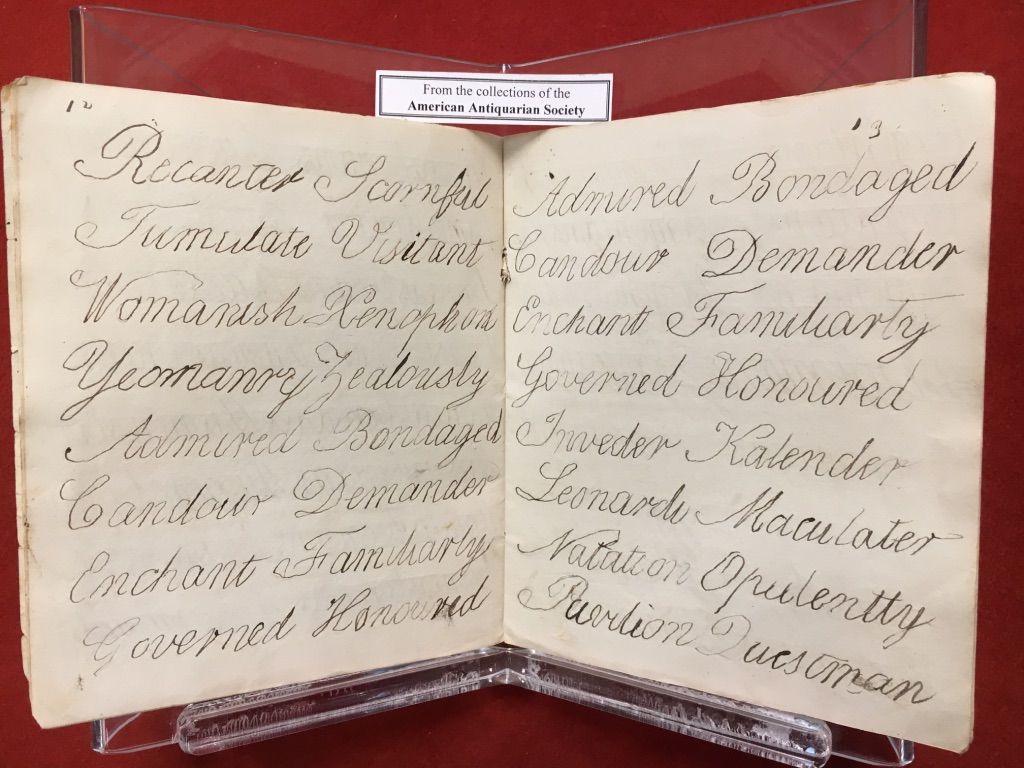 From the collections of the
American Antiquarian Society
12
Recanter Scornful
Tumulate Visitant
Womanish Xenophon
Yeomanry Zealously
Admired Bondaged
Candour Demander
Enchant Familiarly
Governed Honoured
13
Admired Bondaged
Candour Demander
Enchant Familiarty
Governed Honoured
Inveder Kalender
Leonard Maculater
Natation Opulentty
Pavilion Questman